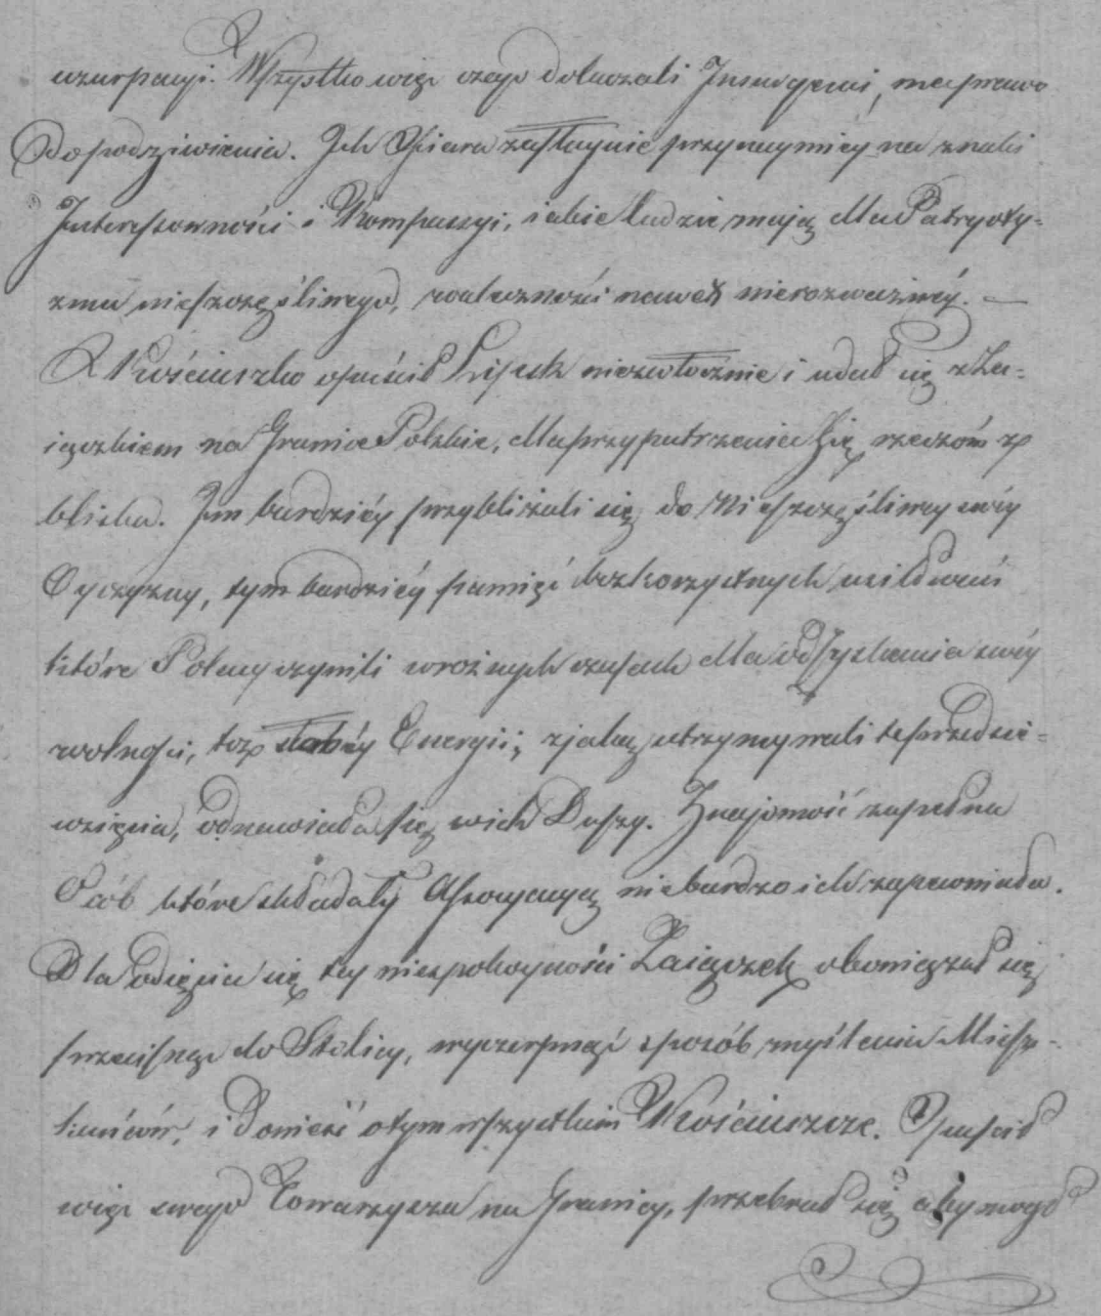 uzurpacyi. Wszystko więc czego dokazali Insurgenci, ma prawo
do podziwienia. Ich Ofiara zasługuie przynaymniey na znaki
Interessowności i Kompassyi, iakie Ludzie maią dla Patryoty-
zmu nieszczęśliwego, waleczności nawet nierozważnéy. —
Kościuszko opuścił Lipsk niezwłocznie i udał się z Za-
iączkiem na Granice Polskie, dla przypatrzenia się rzeczóm z
bliska. Im bardziéy przybliżali się do Nieszczęśliwey swéy
Oyczyzny, tym bardziéy pamięć bezkorzystnych usiłowań
które Polacy czynili w rożnych czasach dla odzyskania swéy
wolności, też słabéy Energii, z jaką utrzymywali te przedsię-
wzięcia, odnawiała się w ich Duszy. Znajomość zupełna
Osób które składały Assocyacyą nie bardzo ich zapewniała.
Dla odięcia się tey niespokoyności Zaiączek obowiązał się
przecisnąć do Stolicy, wyczerpnąć sposób myślenia Miesz-
kańców, i donieść o tym wszystkim Kościuszce. Opuścił
więc swego Towarzysza na Granicy, przebrał się aby mógł